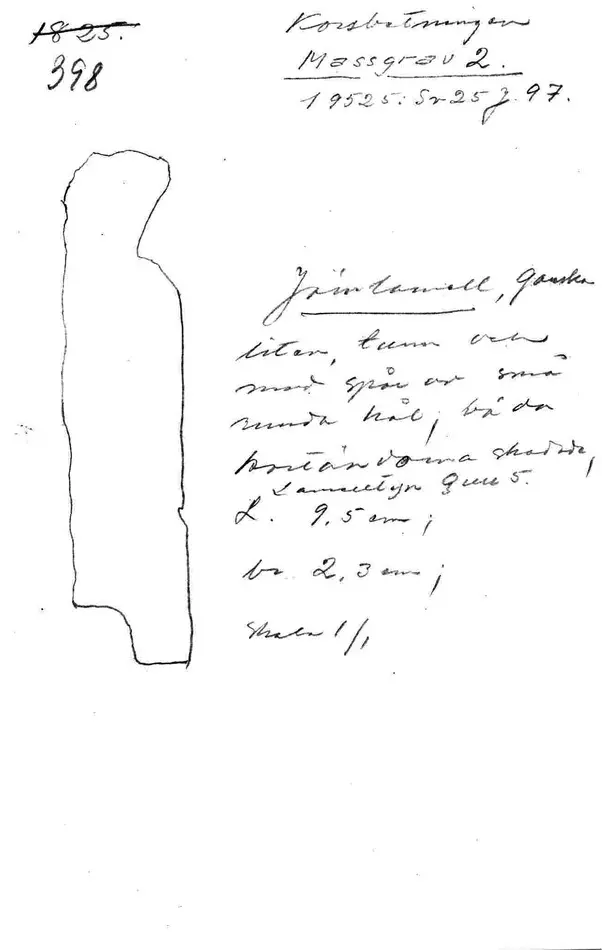 1825.
398
Korsbetningen
Massgrav 2.
19525: Sr 25 J. 97.
Järnlamell, ganska
liten, tunn och
med spår av små
runda hål, båda
kortändorna skadade,
L. 9,5 cm;
br. 2,3 cm;
Skala 1/1